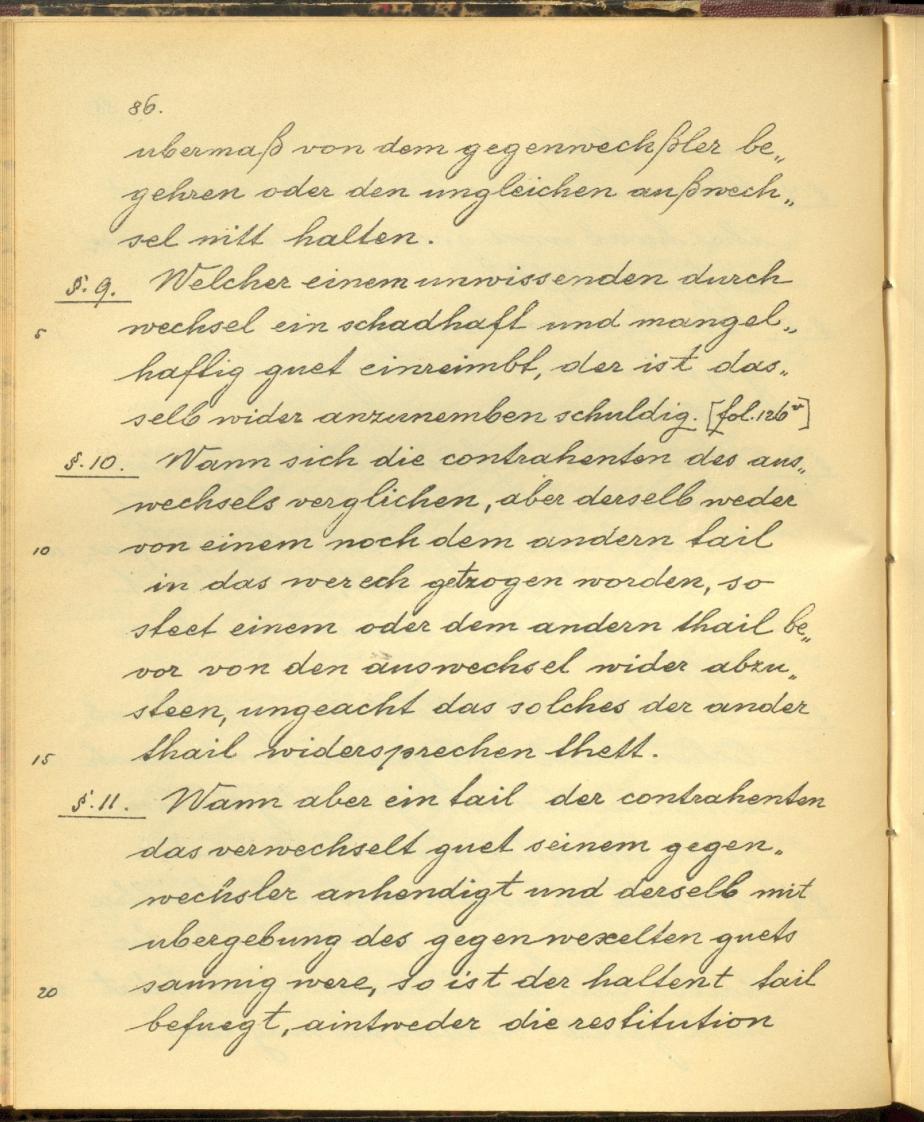 86.
ubermaß von dem gegenwechßler be„
gehren oder den ungleichen außwech„
sel nitt halten.
§. 9. Welcher einem unwissenden durch
5 wechsel ein schadhaft und mangel„
haftig guet einreimbt, der ist das„
selb wider anzunemben schuldig. [fol. 126v]
§. 10. Wann sich die contrahenten des aus„
wechsels verglichen, aber derselb weder
10 von einem noch dem andern tail
in das werech getzogen worden, so
steet einem oder dem andern thail be„
vor von den auswechsel wider abzu„
steen, ungeacht das solches der ander
15 thail widersprechen thett.
§. 11. Wann aber ein tail der contrahenten
das verwechselt guet seinem gegen„
wechsler anhendigt und derselb mit
ubergebung des gegenwexelten guets
20 saumig were, so ist der haltent tail
befuegt, aintweder die restitution